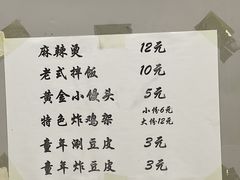 麻辣烫 12元
老式拌饭 10元
黄金小馒头 5元
特色炸鸡架 小份6元
大份12元
童年涮豆皮 3元
童年炸豆皮 3元